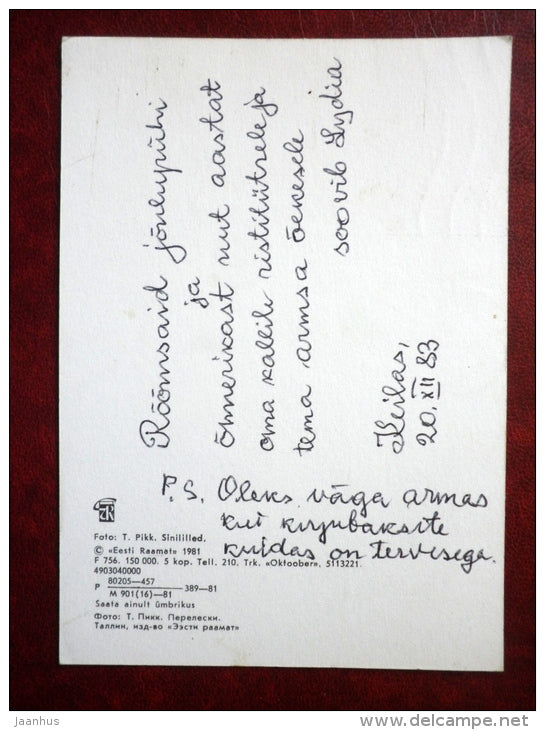 Rõõmsaid jõulupühi
ja
õnnerikast uut aastat
oma kallile ristitütrele ja
tema armsa õekesele
soovib Lydia
Keilas,
20. XII 83
P.S. Oleks väga armas
kui kirjutaksite
kuidas on tervisega.
Foto: T. Pikk. Sinililled.
© «Eesti Raamat» 1981
F 756. 150 000. 5 kop. Tell. 210. Trk. «Oktoober». 5113221.
4903040000
Р 80205—457 389—81
М 901(16)—81
Saata ainult ümbrikus
Фото: Т. Пикк. Перелески.
Таллин, изд-во «Ээсти раамат»
jaanhus
www.delcampe.net